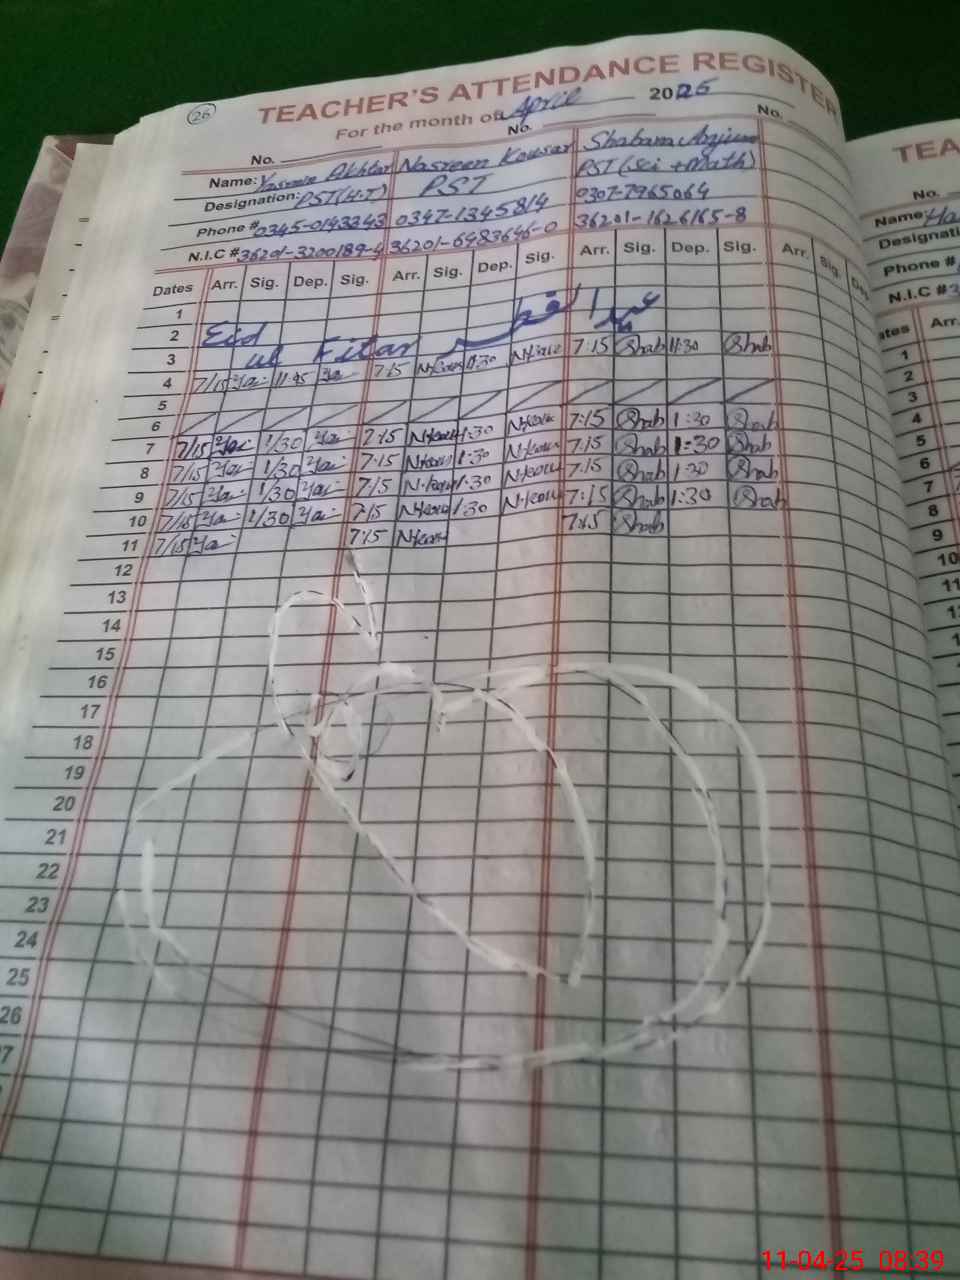 26
TEACHER'S ATTENDANCE REGISTER
For the month of April 2025
No. No. No.
Name: Yasmin Akhtar Nasreen Kousar Shabana Anjum
Designation: PST(H.T) PST PST (Sci + Math)
Phone # 0345-0143343 0347-1345814 0307-7965064
N.I.C # 36201-3200189-4 36201-6483646-0 36201-1626165-8
Dates Arr. Sig. Dep. Sig. Arr. Sig. Dep. Sig. Arr. Sig. Dep. Sig. Arr. Sig.
1
2 Eid ul Fitar عید الفطر
3
4 7/15 11:45 7:15 11:30 7:15 Shab 11:30 Shab
5
6
7 7/15 1/30 7:15 N.kousar 1:30 N.kousar 7:15 Shab 1:30 Shab
8 7/15 1/30 7:15 N.kousar 1:30 N.kousar 7:15 Shab 1:30 Shab
9 7/15 1/30 7:15 N.kousar 1:30 N.kousar 7:15 Shab 1:30 Shab
10 7/15 1/30 7:15 N.kousar 1:30 N.kousar 7:15 Shab 1:30 Shab
11 7/15 7:15 N.kousar 7:15 Shab
12
13
14
15
16
17
18
19
20
21
22
23
24
25
26
7
TEA
No.
Name: Ha
Designati
Phone #
N.I.C #3
ates Arr.
1
2
3
4
5
6
7
8
9
10
11
11-04-25 08:39